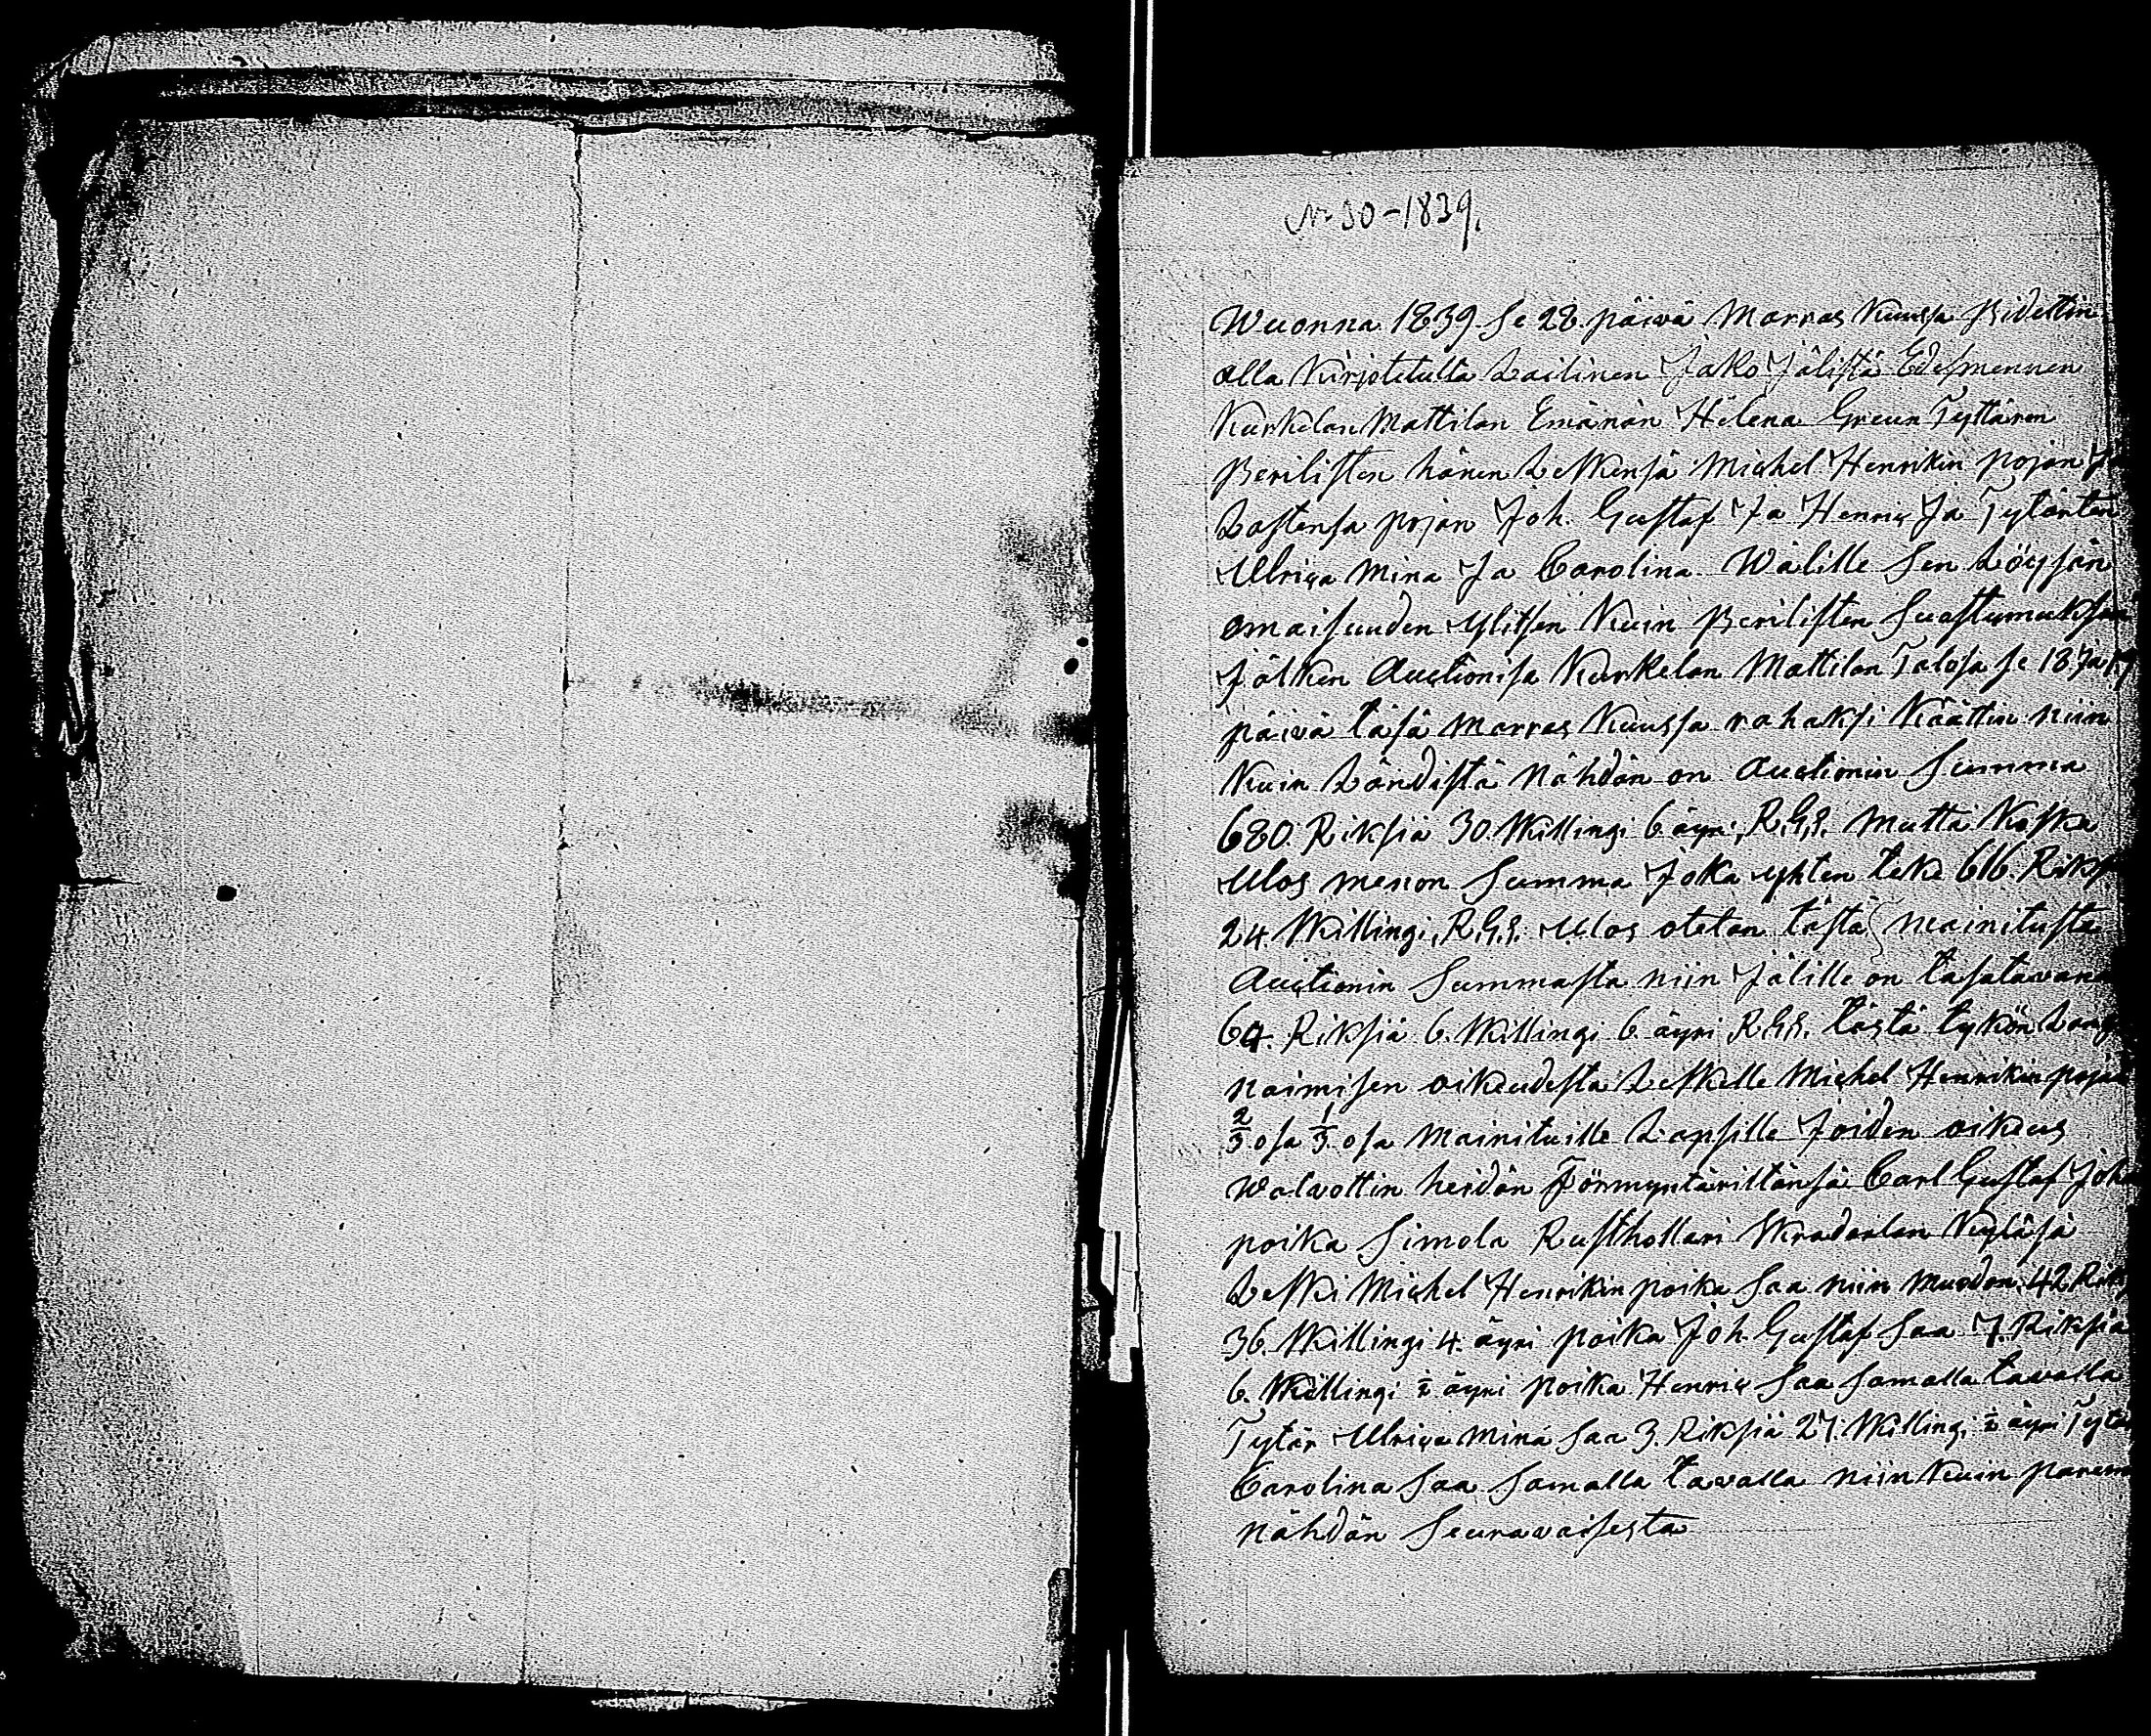 N:o 30-1839.
Wuonna 1839 se 28 päivä Marras Kuussa Pidettin
alla Kirjotetulta Lailinen Jako Jälistä Edesmennen
Kurkelan Mattilan Emänän Helena Green Tyttären
Perilisten hänen Leskensä Michel Henrikin pojan Ja
Lastensa pojan Joh. Gustaf Ja Henric Ja Tytärten
Ulrica Mina Ja Carolina Wälille sen Löysän
omaisuuden Ylitsen Kuin Perilisten Suostumuksen
Jälken Auctionisa Kurkelan Mattilan Talosa se 18 Ja
päivä täsä Marras Kuussa rahaksi Käättin niin
Kuin Ländistä Nähdän on Auctionin Summa
680 Riksiä 30 Killingi 6 äyri, R.G.S. Mutta Koska
Ulos menon Summa Joka yhten teke 616. Riksi
24 Killingi, R.G.S. Ulos otetan tästä mainitusta
Auctionin Summasta niin Jälille on tasatavana
64. Riksiä 6. Killingi 6 äyri R.G.S. tästä tykön
Naimisen oikeudesta Leskelle Michel Henrikin pojan
2/3 osa 1/3 osa Mainituille Lapsille Joiden oikeus
Walvottin heidän Förmyntäriltänsä Carl Gustaf Joh
poika Simola Rusthollari Skradarlan Kylasä
Leski Michel Henrikin poika Saa niin Muodon 42 Riks
36. Killingi 4. äyri poika Joh. Gustaf Saa 7. Riksiä
6. Killingi 1/2 äyri poika Henric Saa Samalla tavalla
Tytär Ulrica Mina Saa 3. Riksiä 27. Killingi 1/2 äyri Tytä
Carolina Saa Samalla tavalla niin Kuin parem
Nähdän Seuravaisesta